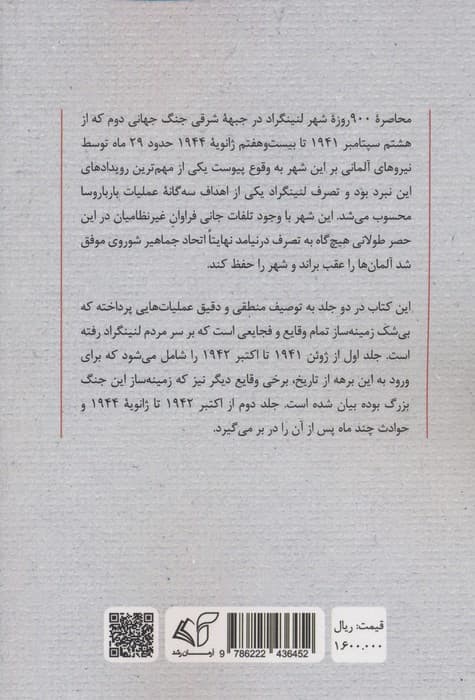 محاصرهٔ ۹۰۰روزهٔ شهر لنینگراد در جبههٔ شرقی جنگ جهانی دوم که از
هشتم سپتامبر ۱۹۴۱ تا بیست‌وهفتم ژانویهٔ ۱۹۴۴ حدود ۲۹ ماه توسط
نیروهای آلمانی بر این شهر به وقوع پیوست یکی از مهم‌ترین رویدادهای
این نبرد بود و تصرف لنینگراد یکی از اهداف سه‌گانهٔ عملیات بارباروسا
محسوب می‌شد. این شهر با وجود تلفات جانی فراوانِ غیرنظامیان در این
حصر طولانی هیچ‌گاه به تصرف درنیامد نهایتاً اتحاد جماهیر شوروی موفق
شد آلمان‌ها را عقب براند و شهر را حفظ کند.
این کتاب در دو جلد به توصیف منطقی و دقیق عملیات‌هایی پرداخته که
بی‌شک زمینه‌ساز تمام وقایع و فجایعی است که بر سر مردم لنینگراد رفته
است. جلد اول از ژوئن ۱۹۴۱ تا اکتبر ۱۹۴۲ را شامل می‌شود که برای
ورود به این برهه از تاریخ، برخی وقایع دیگر نیز که زمینه‌ساز این جنگ
بزرگ بوده بیان شده است. جلد دوم از اکتبر ۱۹۴۲ تا ژانویهٔ ۱۹۴۴ و
حوادث چند ماه پس از آن را در بر می‌گیرد.
قیمت: ریال
۱.۶۰۰.۰۰۰
9 786222 436452
آرمان رشد